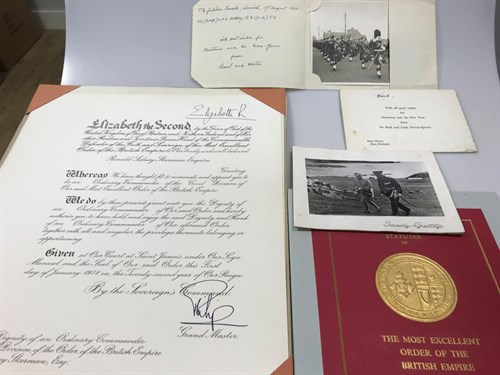 Elizabeth R
Elizabeth the Second, by the Grace of God of the
United Kingdom of Great Britain and Northern Ireland and of Her
other Realms and Territories Queen, Head of the Commonwealth,
Defender of the Faith and Sovereign of the Most Excellent
Order of the British Empire to Our trusty and well beloved
Sidney Sherman Esquire
Greeting
Whereas We have thought fit to nominate and appoint you to
be an Ordinary Commander of the Civil Division of
Our said Most Excellent Order of the British Empire
We do by these presents grant unto you the Dignity of
an Ordinary Commander of Our said Order and hereby
authorise you to have hold and enjoy the said Dignity and Rank of
an Ordinary Commander of Our aforesaid Order
together with all and singular the privileges thereunto belonging or
appertaining.
Given at Our Court at Saint James's under Our Sign
Manual and the Seal of Our said Order this First
day of January 1974 in the Twenty-second year of Our Reign.
By the Sovereign's Command.
Philip
Grand Master
Dignity of an Ordinary Commander
Division of the Order of the British Empire
Sherman, Esq.
with best wishes for
Christmas and the New Year
from
With all good wishes
for
Christmas and the New Year
from
Season's Greetings
STATUTES
OF
THE MOST EXCELLENT
ORDER OF THE
BRITISH EMPIRE